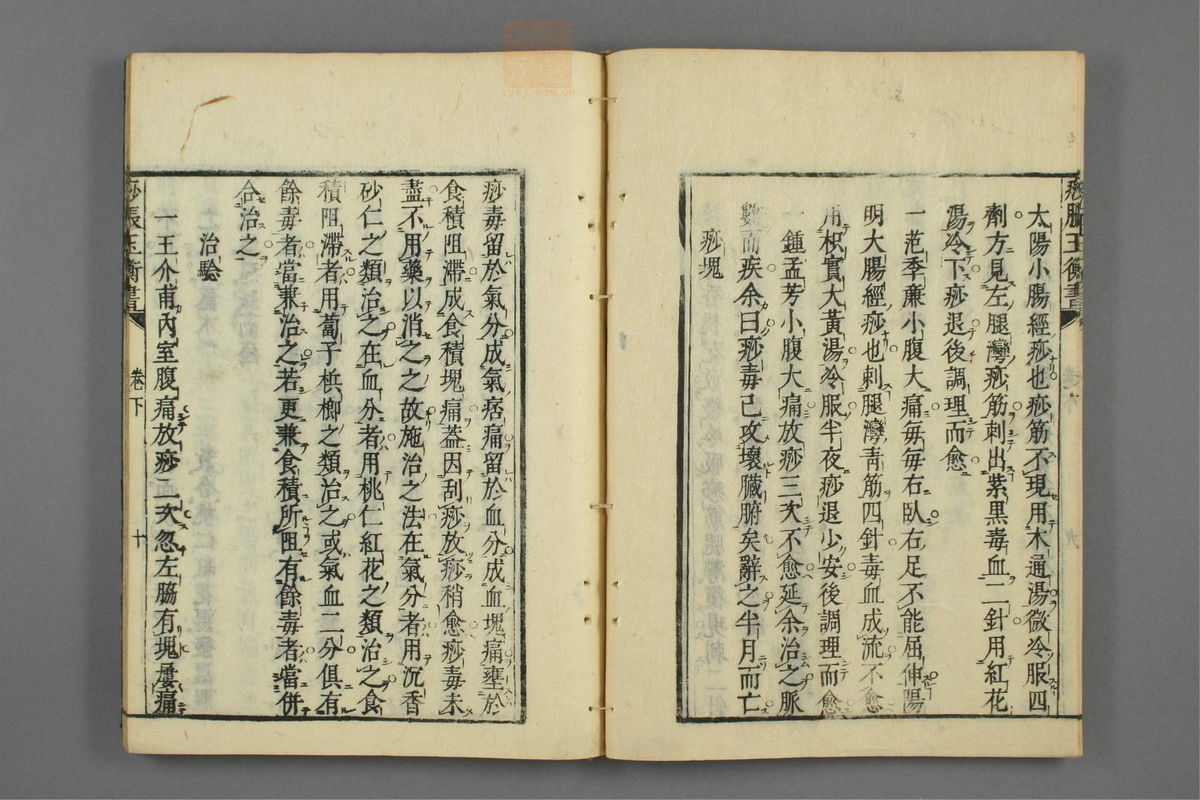 痧脹玉衡書
太陽小腸經痧也痧筋不現用木通湯微冷服四
劑方見左腿灣痧筋刺出紫黑毒血二針用紅花
湯冷下痧退後調理而愈
一范季亷小腹大痛每每右臥右足不能屈伸陽
明大腸經痧也刺腿灣青筋四針毒血成流不愈
用枳實大黃湯冷服半夜痧退少安後調理而愈
一鍾孟芳小腹大痛放痧三次不愈延余治之脈
數而疾余曰痧毒已攻壞臟腑矣辭之半月而亡
痧塊
痧毒留於氣分成氣痞痛留於血分成血塊痛壅於
食積阻滯成食積塊痛葢因刮痧放痧稍愈痧毒未
盡不用藥以消之之故施治之法在氣分者用沉香
砂仁之類治之在血分者用桃仁紅花之類治之食
積阻滯者用蔔子梹榔之類治之或氣血二分俱有
餘毒者當兼治之若更兼食積所阻有餘毒者當併
合治之
治驗
一王介甫內室腹痛放痧二次忽左脇有塊屢痛
痧脹玉衡書 卷下 十